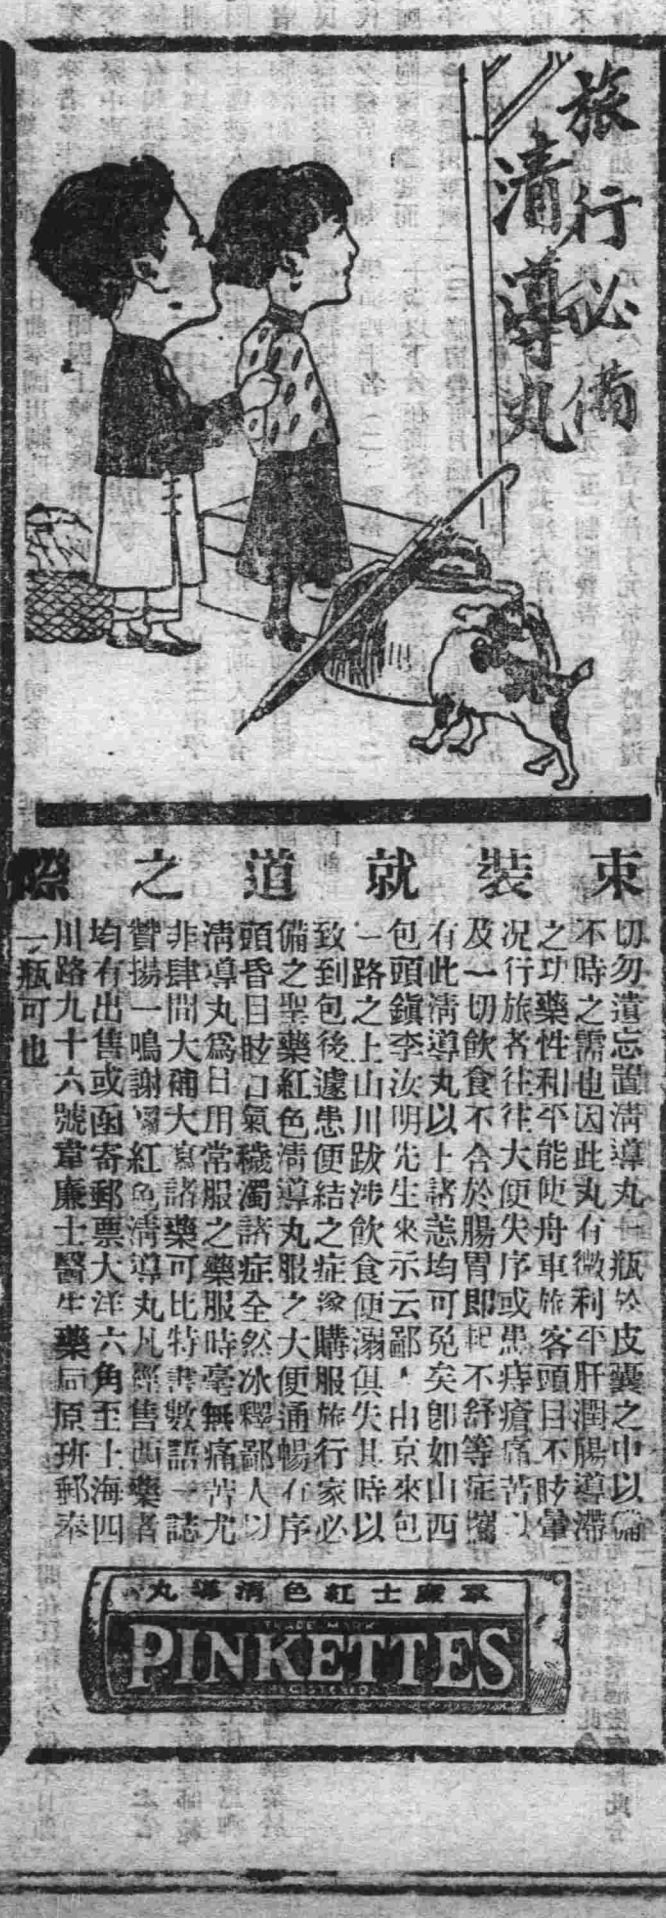 旅行必備
清導丸
束裝就道之際
切勿遺忘置清導丸一瓶於皮囊之中以備
不時之需也因此丸有微利平肝潤腸導滯
之功藥性和平能使舟車旅客頭目不眩暈
况行旅者往往大便失序或患痔瘡痛苦以
及一切飲食不合於腸胃即起不舒等症攜
有此清導丸以上諸恙均可免矣卽如山西
包頭鎮李汝明先生來示云鄙人由京來包
一路之上山川跋涉飲食便溺俱失其時以
致到包後遽患便結之症遂購服旅行家必
備之聖藥紅色清導丸服之大便通暢有序
頭昏目眩口氣穢濁諸症全然冰釋鄙人以
清導丸爲日用常服之藥服時毫無痛苦尤
非肆間大補大瀉諸藥可比特書數語誌
贊揚一鳴謝紅色清導丸凡經售西藥者
均有出售或函寄郵票大洋六角至上海四
川路九十六號韋廉士醫生藥局原班郵奉
一瓶可也
韋廉士紅色清導丸
TRADE MARK
PINKETTES
REGISTERED